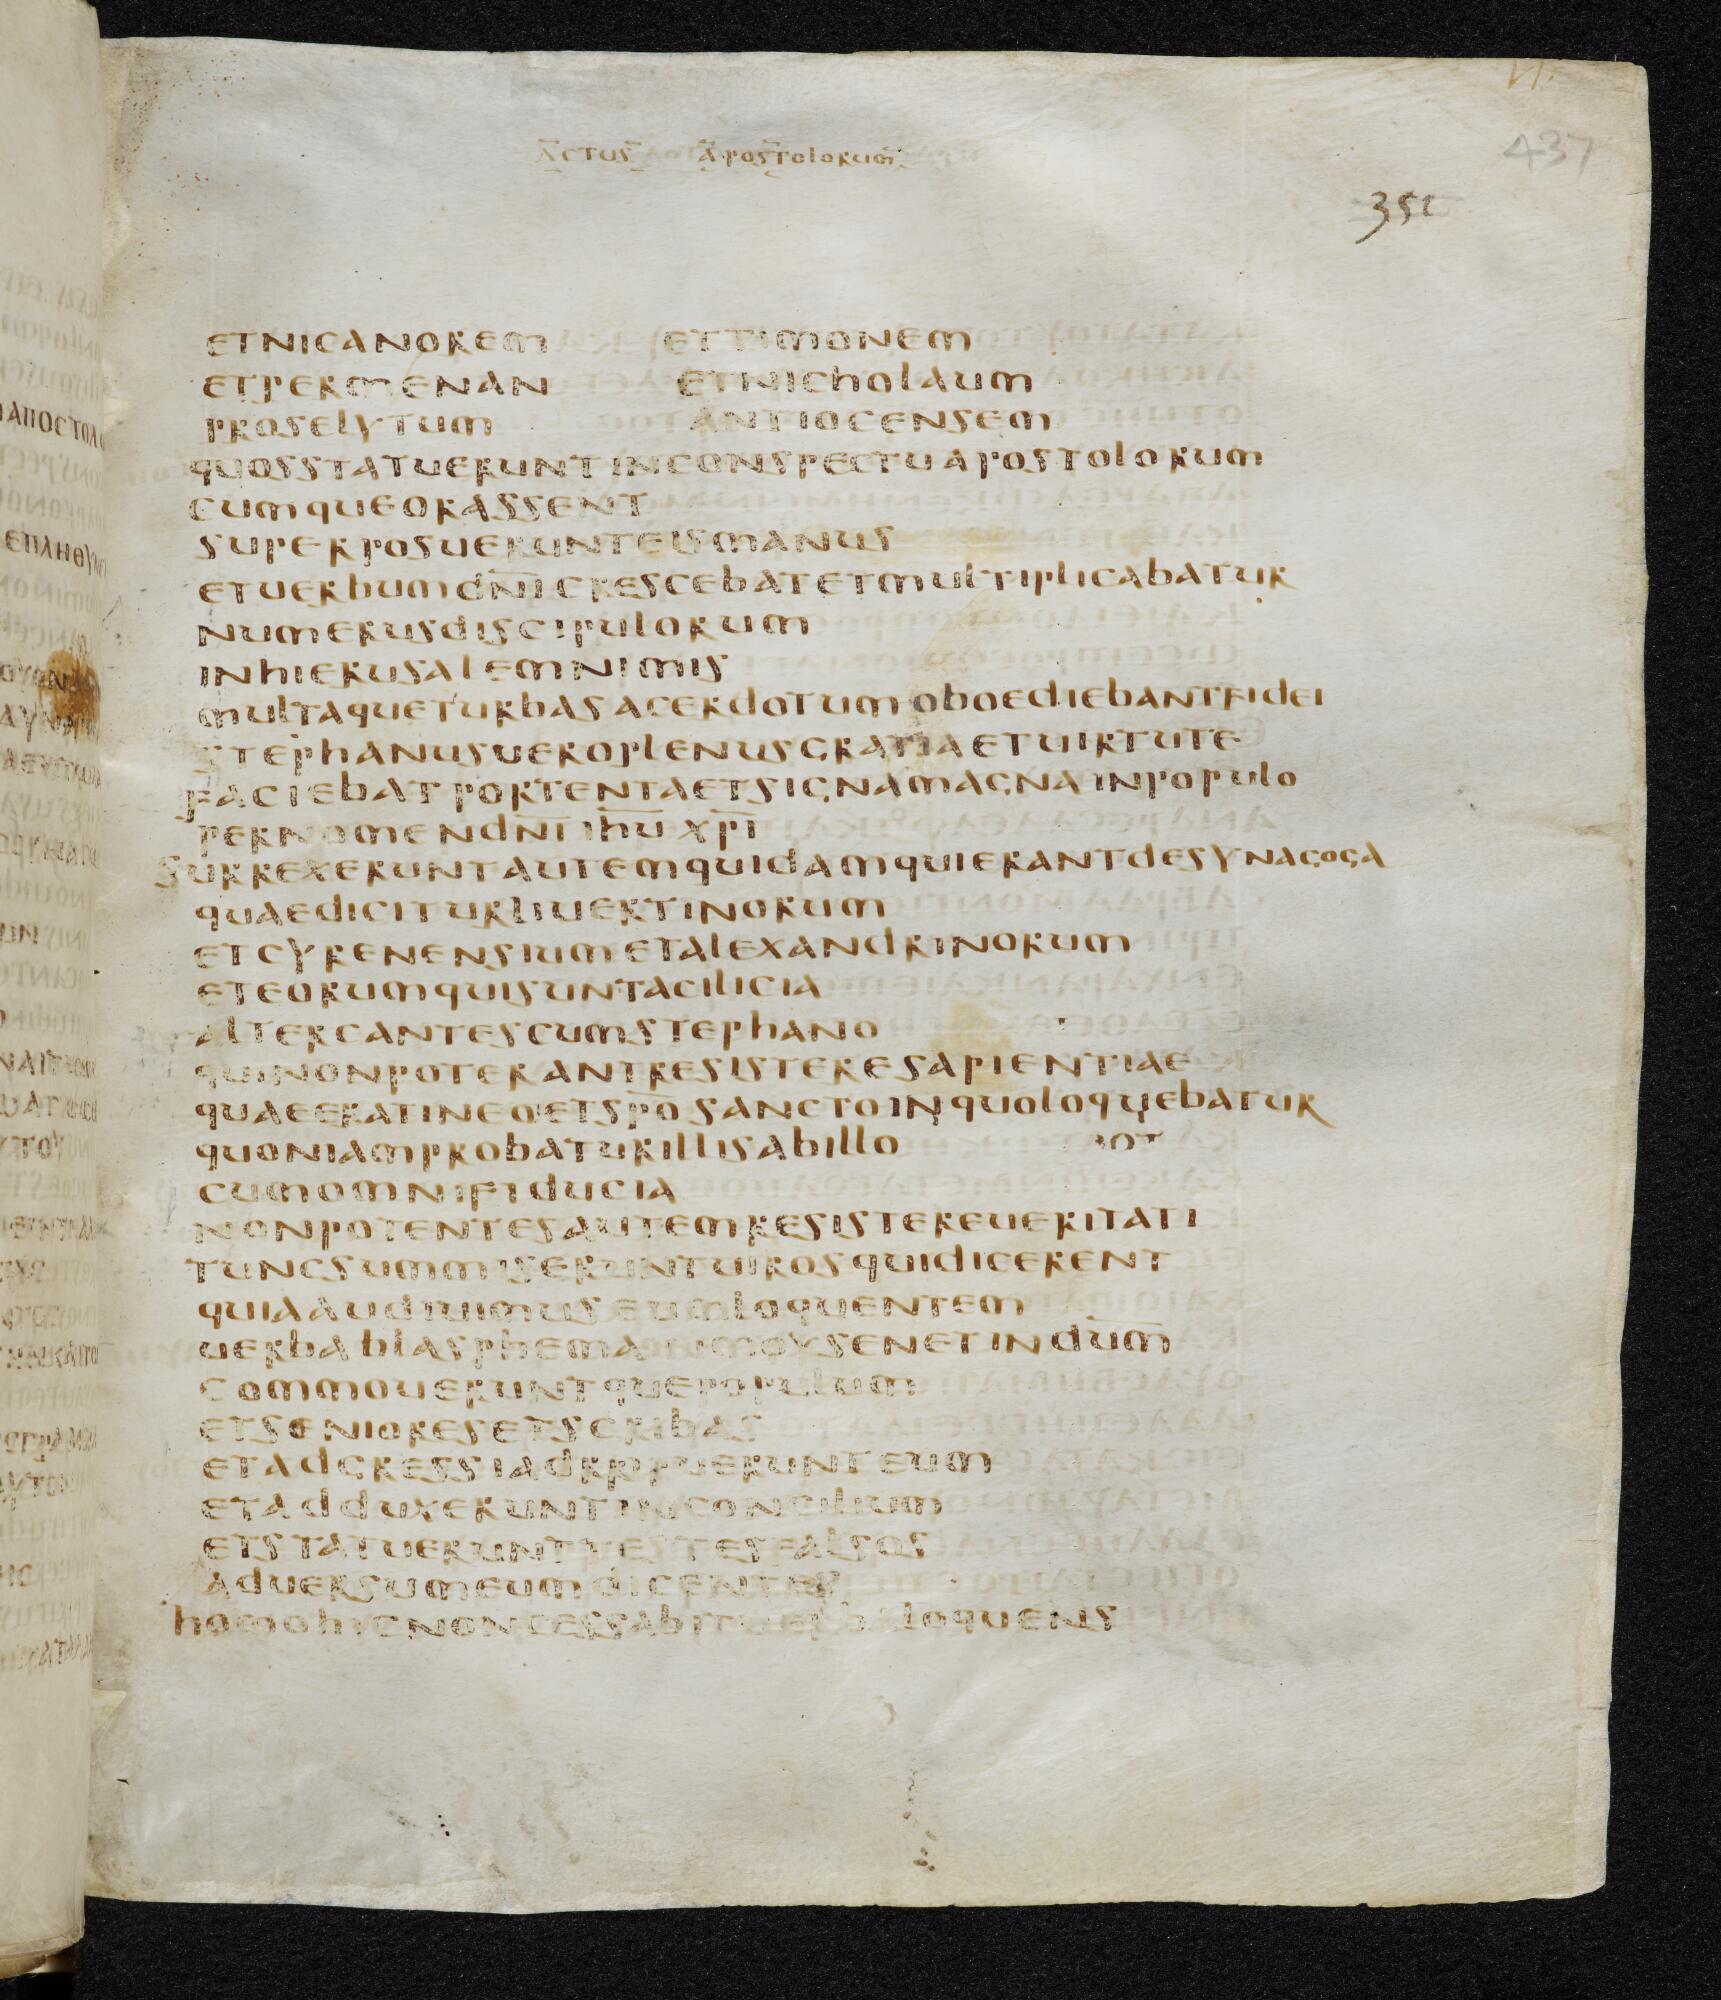 VI.
437
ACTUS APOSTOLORUM
352
ETNICANOREM ETTIMONEM
ETPERMENAN ETNICHOLAUM
PROSELYTUM ANTIOCENSEM
QUOSSTATUERUNTINCONSPECTUAPOSTOLORUM
CUMQUEORASSENT
SUPERPOSUERUNTEISMANUS
ETUERBUMDN̅I̅CRESCEBATETMULTIPLICABATUR
NUMERUSDISCIPULORUM
INHIERUSALEMNIMIS
MULTAQUETURBASACERDOTUMOBOEDIEBANTFIDEI
STEPHANUSUEROPLENUSGRATIAETUIRTUTE
FACIEBATPORTENTAETSIGNAMAGNAINPOPULO
PERNOMENDN̅I̅IH̅U̅XP̅I̅
SURREXERUNTAUTEMQUIDAMQUIERANTDESYNAGOGA
QUAEDICITURLIUERTINORUM
ETCYRENENSIUMETALEXANDRINORUM
ETEORUMQUISUNTACILICIA
ALTERCANTESCUMSTEPHANO
QUINONPOTERANTRESISTERESAPIENTIAE
QUAEERATINEOETSP̅O̅SANCTOINQUOLOQUEBATUR
QUONIAMPROBATURILLISABILLO
CUMOMNIFIDUCIA
NONPOTENTESAUTEMRESISTEREUERITATI
TUNCSUMMISERUNTUIROSQUIDICERENT
QUIAAUDIUIMUSEUMLOQUENTEM
UERBABLASPHEMAINMOYSENETINDU̅M̅
COMMOUERUNTQUEPOPULUM
ETSENIORESETSCRIBAS
ETADGRESSIADRIPUERUNTEUM
ETADDUXERUNTINCONCILIUM
ETSTATUERUNTTESTESFALSOS
ADUERSUMEUMDICENTES
HOMOHICNONCESSABITUERBALOQUENS